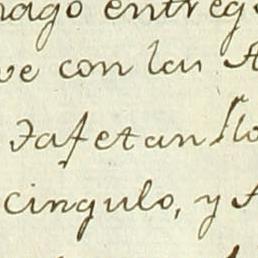 hago entreg
ve con las A
Tafetan llo
cingulo, y A